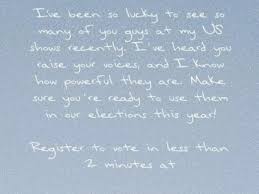 I've been so lucky to see so
many of you guys at my US
shows recently. I've heard you
raise your voices, and I know
how powerful they are. Make
sure you're ready to use them
in our elections this year!
Register to vote in less than
2 minutes at